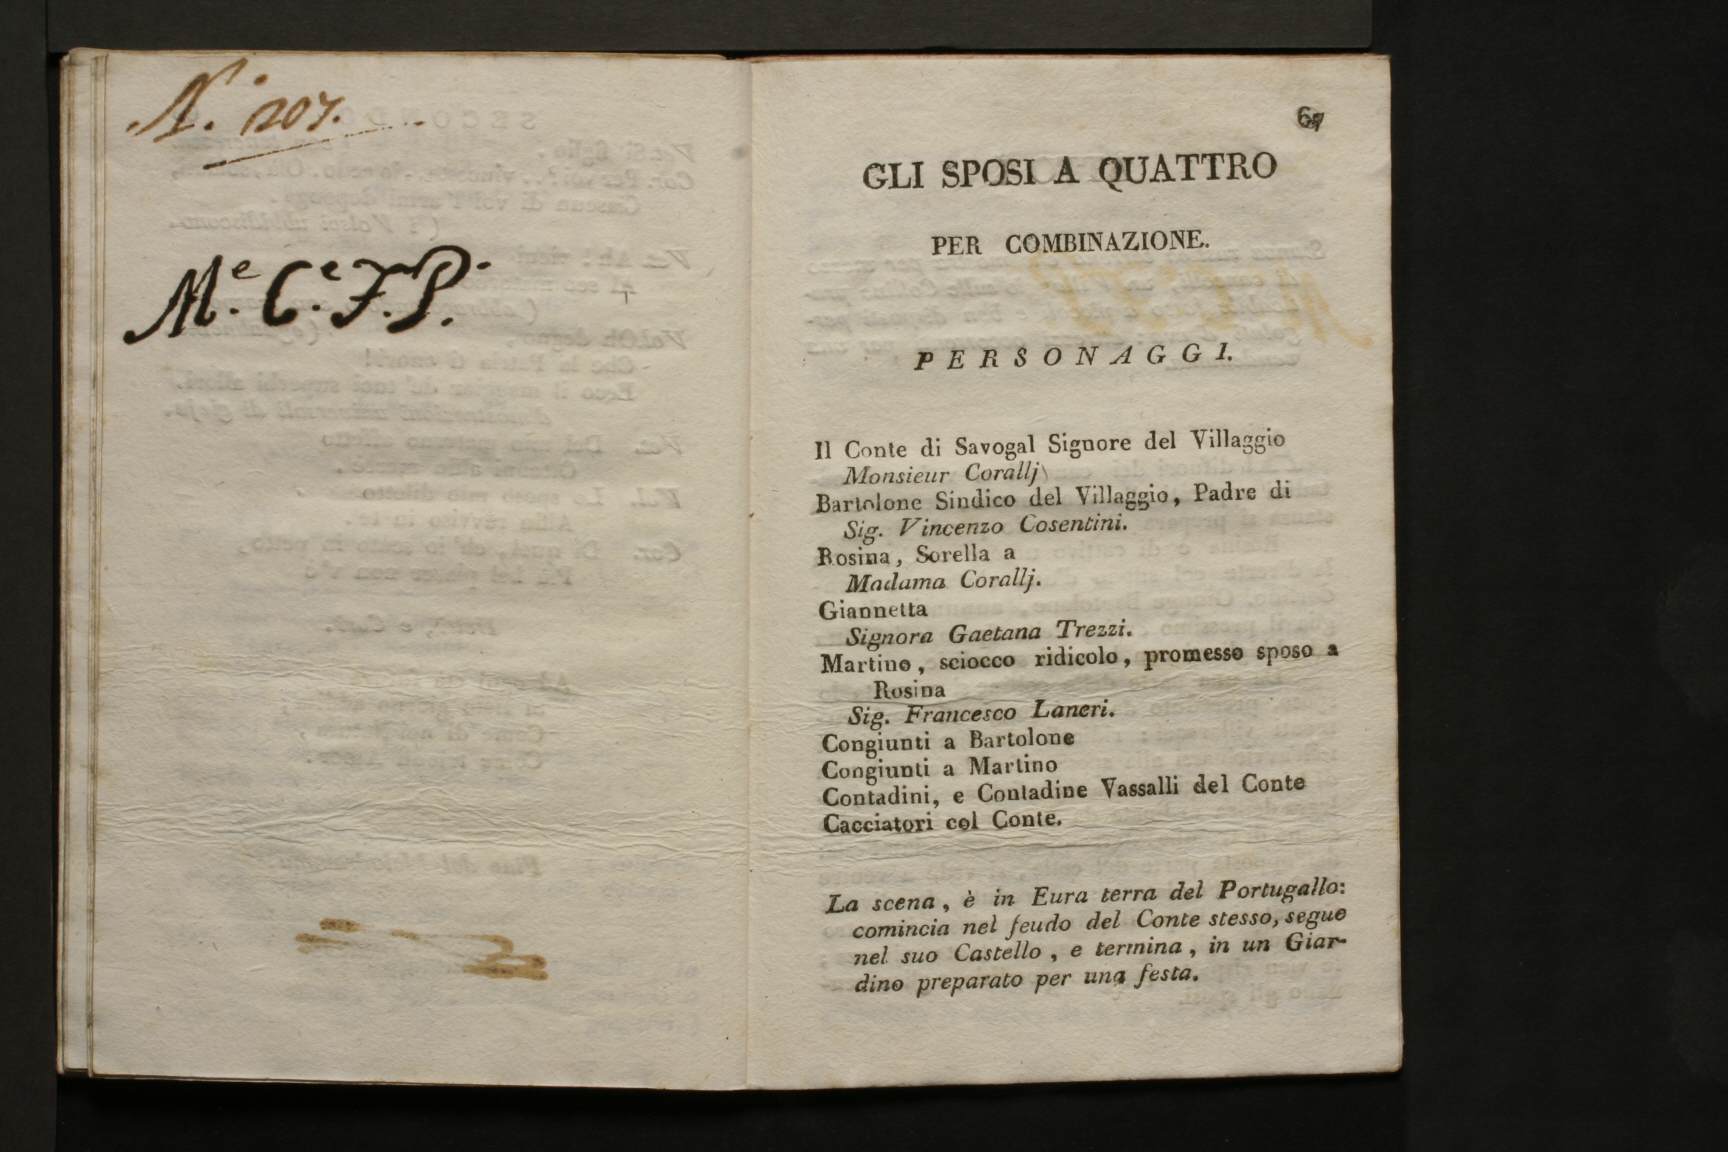 N.° 207.
M.e C.e F. P.
67
GLI SPOSI A QUATTRO
PER COMBINAZIONE.
PERSONAGGI.
Il Conte di Savogal Signore del Villaggio
Monsieur Corallj
Bartolone Sindico del Villaggio, Padre di
Sig. Vincenzo Cosentini.
Rosina, Sorella a
Madama Corallj.
Giannetta
Signora Gaetana Trezzi.
Martino, sciocco ridicolo, promesso sposo a
Rosina
Sig. Francesco Laneri.
Congiunti a Bartolone
Congiunti a Martino
Contadini, e Contadine Vassalli del Conte
Cacciatori col Conte.
La scena, è in Eura terra del Portugallo:
comincia nel feudo del Conte stesso, segue
nel suo Castello, e termina, in un Giar-
dino preparato per una festa.